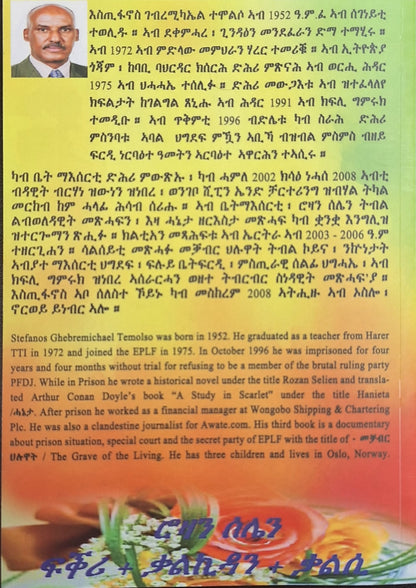 እስጢፋኖስ ገብረሚካኤል ተሞልሶ ኣብ 1952 ዓ.ም.ፈ ኣብ ሰገነይቲ
ተወሊዱ ። ኣብ ደቀምሓረ ፣ ጊንዳዕን መንደፈራን ድማ ተማሂሩ ።
ኣብ 1972 ኣብ ምድላው መምህራን ሃረር ተመሪቑ ። ኣብ ኢትዮጵያ
ጎጃም ፣ ከባቢ ባህርዳር ክሰርሕ ድሕሪ ምጽናሕ ኣብ ወርሒ ሕዳር
1975 ኣብ ህ.ሓ.ሓ.ኤ ተሰሊፉ ። ድሕሪ መውጋእቱ ኣብ ዝተፈላለየ
ክፍልታት ከገልግል ጸኒሑ ኣብ ሕዳር 1991 ኣብ ክፍሊ ግምሩክ
ተመዲቡ ። ኣብ ጥቅምቲ 1996 ብድሌቱ ካብ ስራሕ ድሕሪ
ምስንባቱ ኣባል ህግደፍ ምዃን ኣቢኻ ብዝብል ምስምስ ብዘይ
ፍርዲ ንርባዕተ ዓመትን ኣርባዕተ ኣዋርሕን ተኣሲሩ ።
ካብ ቤት ማእሰርቲ ድሕሪ ምውጽኡ ፣ ካብ ሓምለ 2002 ክሳዕ ነሓሰ 2008 ኣብቲ
ብዳዊት ብርሃነ ዝውነን ዝነበረ ፣ ወንጎቦ ሺፒንግ ኤንድ ቻርተሪንግ ዝብሃል ትካል
መርከብ ከም ሓላፊ ሕሳብ ሰሪሑ ። ኣብ ቤትማእሰርቲ ፣ ሮዛን ሰሌን ትብል
ልብወለዳዊት መጽሓፍን ፣ እዛ ሓኔታ ዘርእስታ መጽሓፍ ካብ ቋንቋ እንግሊዝ
ዝተርጐማን ጽሒፉ ። ክልቲአን መጻሕፍቲ ኣብ ኤርትራ ኣብ 2003 - 2006 ዓ.ም
ተዘርጊሐን ። ሳልሰይቲ መጽሓፉ መቓብር ህሉዋት ትብል ኮይና ፣ ንኵነታት
ኣብያተ ማእሰርቲ ህግደፍ ፣ ፍሉይ ቤትፍርዲ ፣ ምስጢራዊ ሰልፊ ህግሓኤ ፣ ኣብ
ክፍሊ ግምሩክ ዝነበረ ኣሰራርሓን ወዘተ ትብርብር ሰነዳዊት መጽሓፍ'ያ ።
እስጢፋኖስ ኣቦ ሰለስተ ኾይኑ ካብ መስከረም 2008 ኣትሒዙ ኣብ ኦስሎ ፣
ኖርወይ ይነብር ኣሎ ።
Stefanos Ghebremichael Temolso was born in 1952. He graduated as a teacher from Harer
TTI in 1972 and joined the EPLF in 1975. In October 1996 he was imprisoned for four
years and four months without trial for refusing to be a member of the brutal ruling party
PFDJ. While in Prison he wrote a historical novel under the title Rozan Selien and transla-
ted Arthur Conan Doyle's book "A Study in Scarlet" under the title Hanieta
/ሓኔታ. After prison he worked as a financial manager at Wongobo Shipping & Chartering
Plc. He was also a clandestine journalist for Awate.com. His third book is a documentary
about prison situation, special court and the secret party of EPLF with the title of - መቓብር
ህሉዋት / The Grave of the Living. He has three children and lives in Oslo, Norway.
ሮዛን ሰሌን
ፍቕሪ + ቃልኪዳን + ቃልሲ